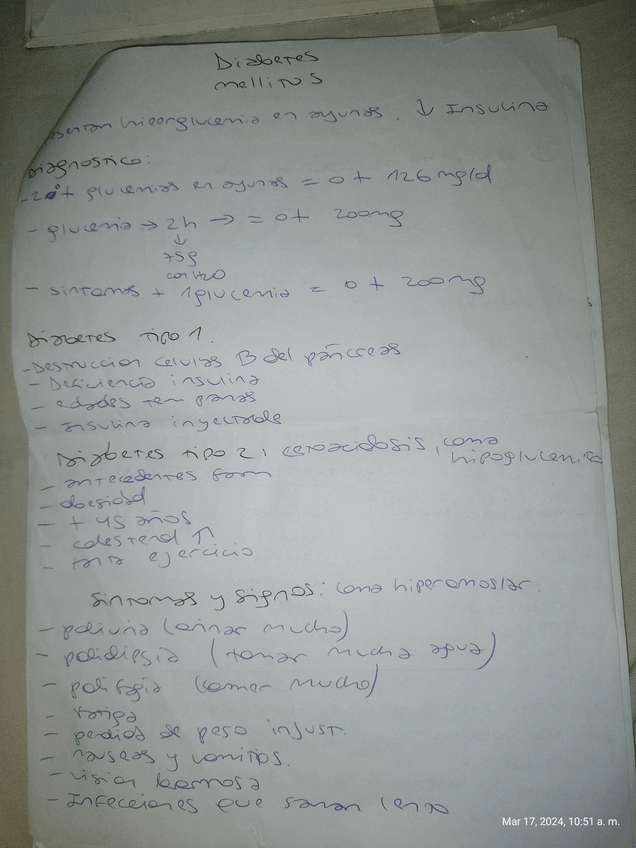 Diabetes
mellitus
hiperglucemia en ayunas. ↓ Insulina
Diagnostico:
-2 o + glucemias en ayunas = o + 126 mg/d
- glucemia → 2h → = o + 200mg
↓
75g
con H2O
- sintomas + 1 glucemia = o + 200mg
Diabetes tipo 1.
- Destruccion celulas B del páncreas
- Deficiencia insulina
- edades tempanas
- Insulina inyectable
Diabetes tipo 2: cetoacidosis, coma
hipoglucemico
- antecedentes fam
- obesidad
- + 45 años
- colesterol ↑
- falta ejercicio
Sintomas y signos: coma hiperomoslar.
- poliuria (orinar mucho)
- polidipsia (tomar mucha agua)
- polifagia (comer mucho)
- Fatiga
- perdida de peso injust.
- nauseas y vomitos.
- vision borrosa
- Infecciones que sanan lento
Mar 17, 2024, 10:51 a. m.